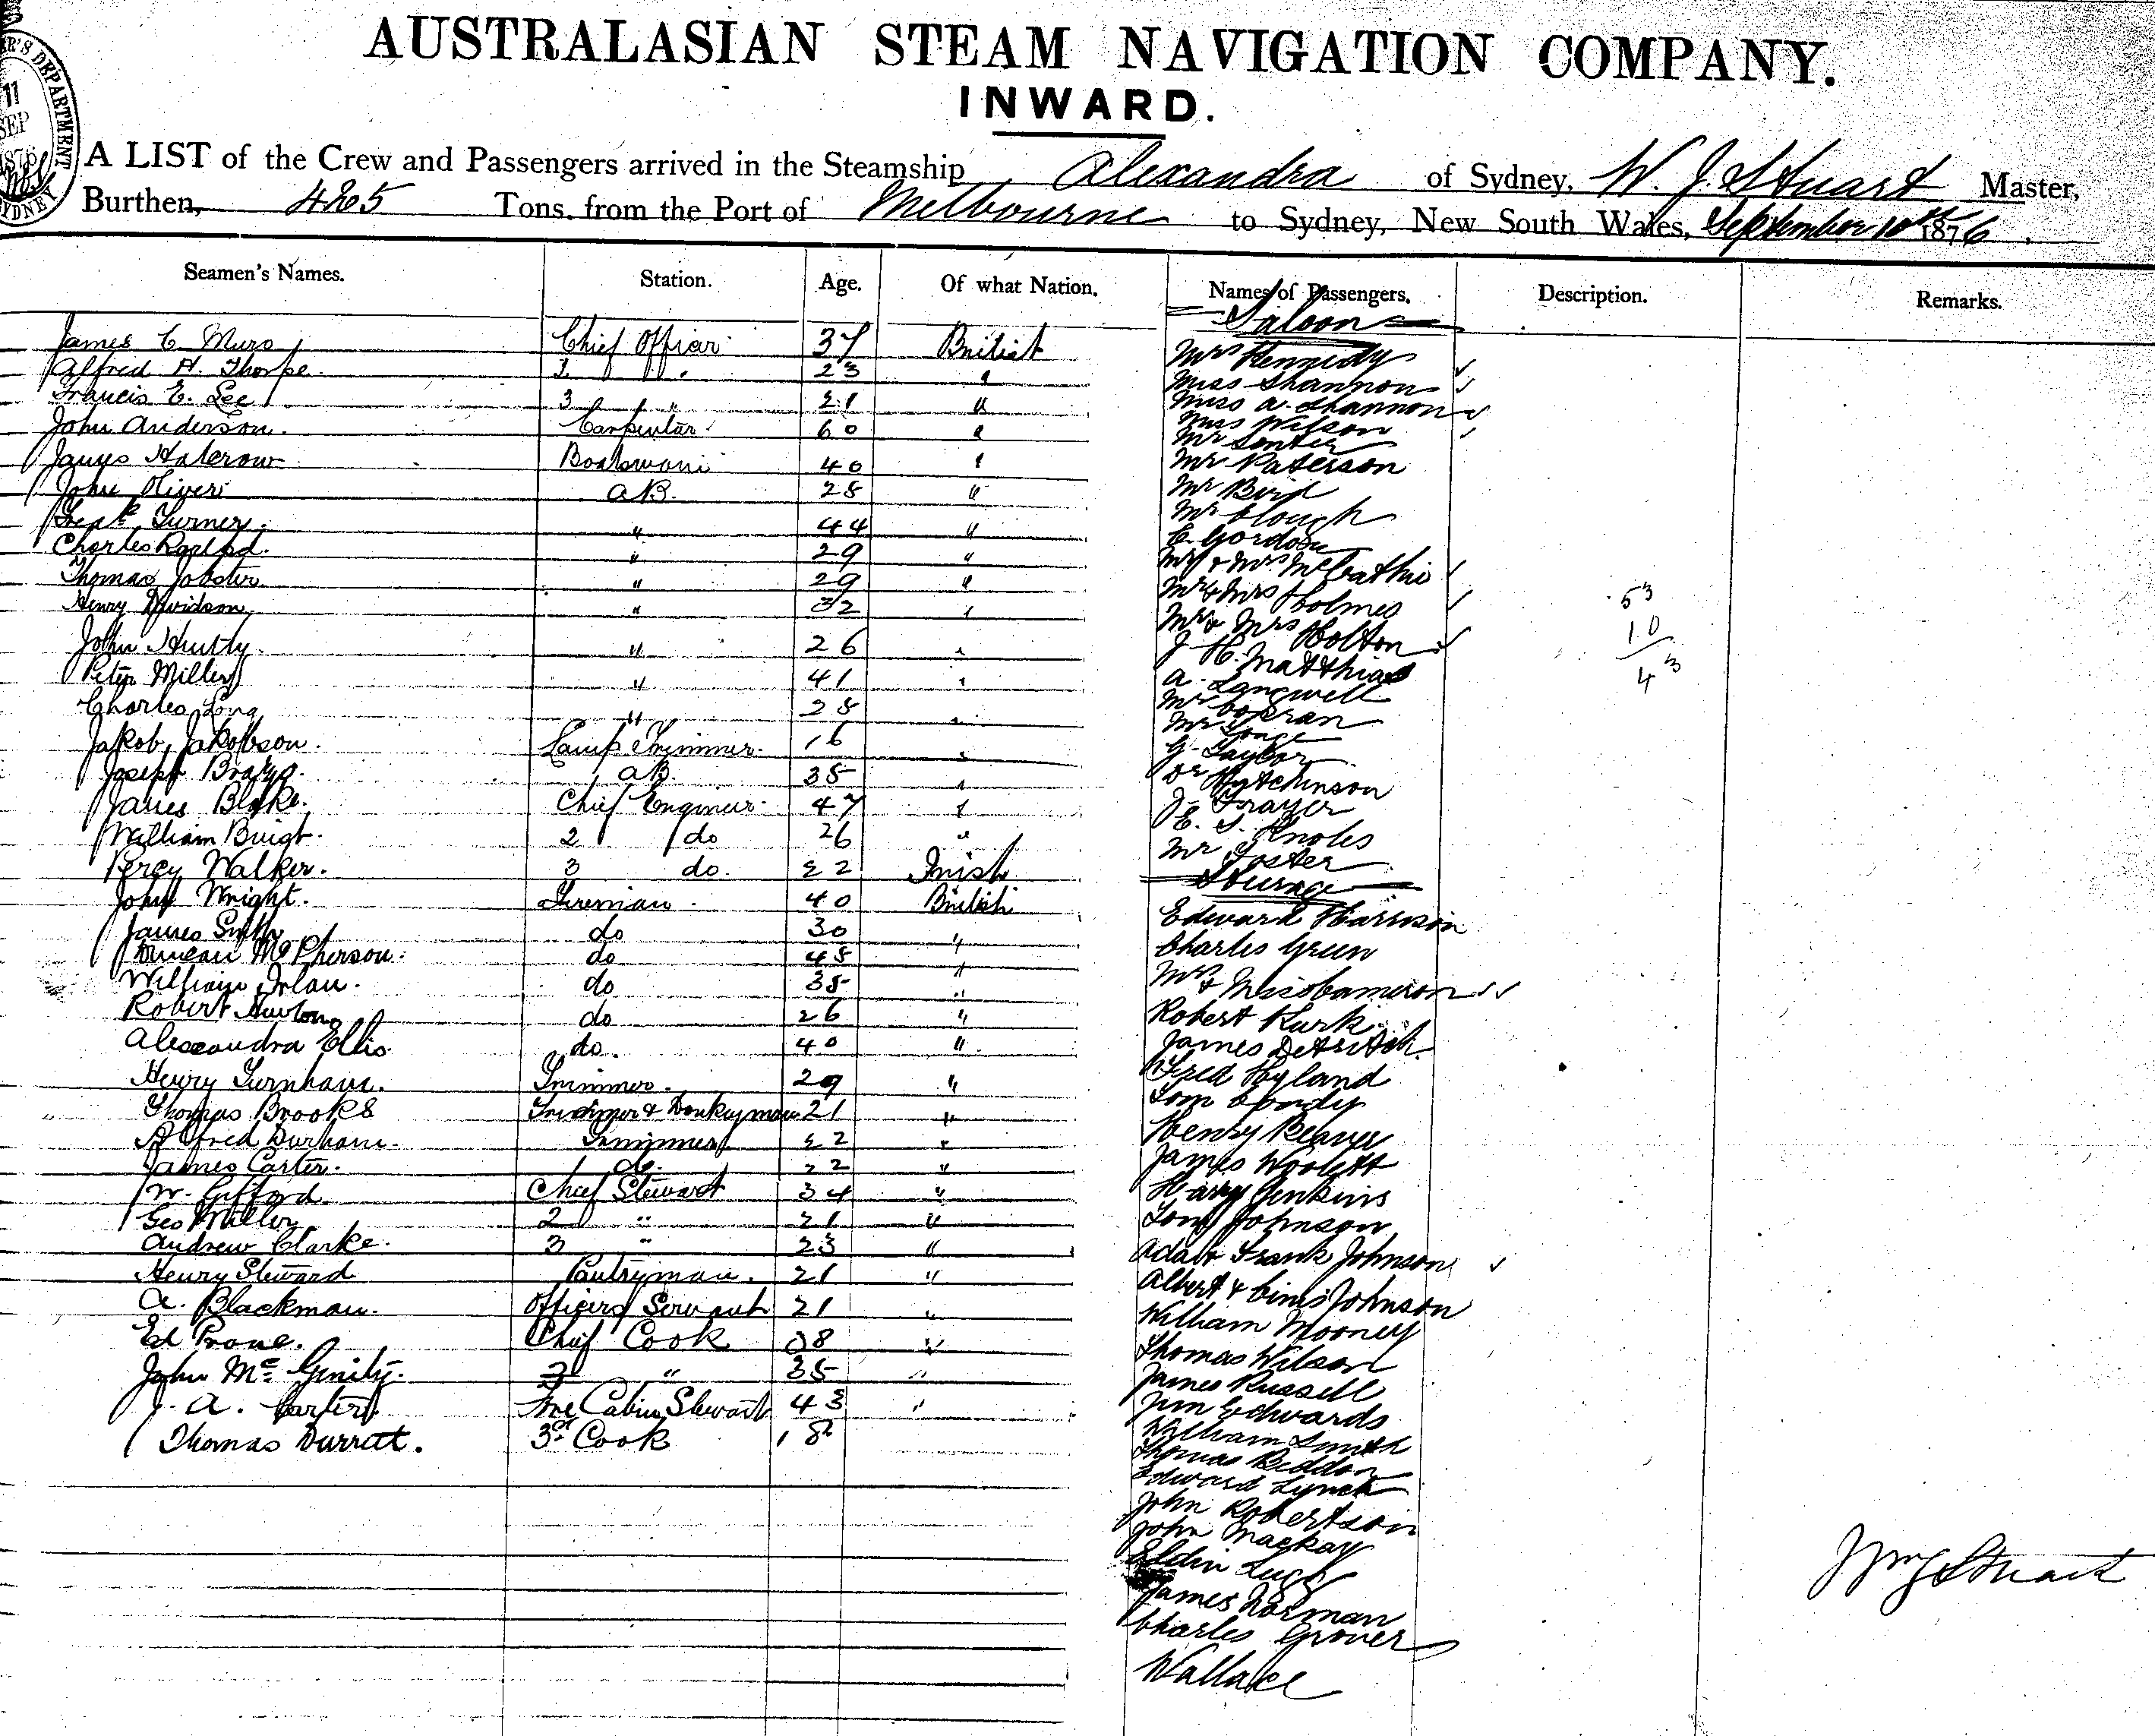 AUSTRALASIAN STEAM NAVIGATION COMPANY.
INWARD.
A LIST of the Crew and Passengers arrived in the Steamship Alexandra of Sydney, W. J. Stuart Master,
Burthen, 425 Tons. from the Port of Melbourne to Sydney, New South Wales, September 10th 1876.
11 SEP 1876
SYDNEY
Seamen's Names. Station. Age. Of what Nation. Names of Passengers. Description. Remarks.
Saloon
James C. Muro Chief Officer 37 British Mrs Kennedy
Alfred H. Thorpe 2 " 23 " Miss Shannon
Francis E. Lee 3 " 21 " Miss A. Shannon
John Anderson. Carpenter 60 " Miss Wilson
Mr
James Halcrow Boatswain 40 " Mr Paterson
John Oliver AB. 28 " Mr Bird
Fredk Turner. " 44 " Mr Clough
Charles " 29 " E. Gordon
Thomas Jobster " 29 " Mr & Mrs McCathie
Henry Davidson " 32 " Mr & Mrs Holmes
53
10
43
Mr & Mrs Bolton
John " 26 " J. H. Matthias
Peter Miller " 41 " A. Langwell
Charles Long " 28 " Mr
Mr
Jakob Jakobson. Lamp Trimmer. 16 " G. Taylor
Joseph AB. 35 " Dr Hutchinson
James Blake. Chief Engineer 47 " J. Frayer
William 2 do 26 " E. S. Knoles
Mr Foster
Percy Walker. 3 do. 22 Irish Steerage
John Wright. Fireman. 40 British Edward Harrison
James Smith do 30 " Charles Green
Duncan McPherson. do 48 " Mrs & Miss Cameron
William do 35 "
Robert do 26 " Robert Kurk
Alexandra Ellis do. 40 " James
Henry Turnham. Trimmer. 29 " Fred Hyland
Thomas Brooks Trimmer & Donkeyman 21 " Tom
Alfred Durham. Trimmer 22 " Henry Beaver
James Carter. do. 22 " James
W. Gifford Chief Steward 34 " Harry Jenkins
Geo Miller 2 " 21 " Tom Johnson
Andrew Clarke. 3 " 23 " Ada & Frank Johnson
Henry Steward Pantryman. 21 " Albert & Johnson
A. Blackman. Officers Servant 21 " William Mooney
Ed Prone. Chief Cook 38 " Thomas Wilson
John McGinity. 2 " 35 " James Russell
J. A. Carter Fore Cabin Steward 43 " Jim Edwards
Thomas Durrat. 3rd Cook 18 William Smith
Thomas Beddon
Edward Lynch
John Robertson
John Mackay
James Norman
Charles Grover
Wallace
Wm J Stuart